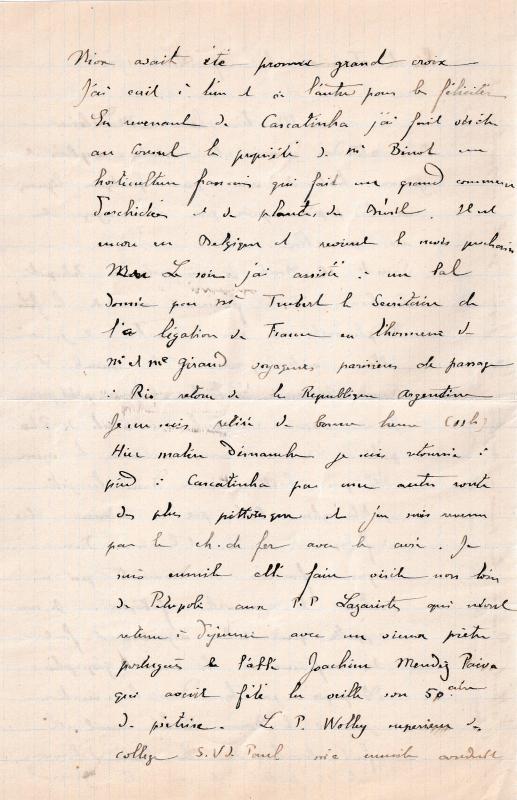 avait été promu grand croix
J'ai écrit à l'un et à l'autre pour les féliciter
En revenant de Cascatinha j'ai fait visiter
au Consul la propriété de Mr Binot un
horticulteur français qui fait un grand commerce
d'orchidées et de plantes du Brésil. Il est
encore en Belgique et revient le mois prochain
Le soir j'ai assisté à un bal
donné par Mr Trubert le Secrétaire de
la légation de France en l'honneur de
Mr et Me Giraud voyageurs parisiens de passage
à Rio retour de la République Argentine
Je me suis retiré de bonne heure (11h)
Hier matin Dimanche je suis retourné à
pied à Cascatinha par une autre route
des plus pittoresque et j'en suis revenu
par le ch. de fer avec le curé. Je
suis ensuite allé faire visite non loin
de Pétropolis aux P.P Lazaristes qui m'ont
retenu à déjeuner avec un vieux prêtre
portugais l'abbé Joachim Mendez Paiva
qui avait fêté la veille son 50 aire
de prêtrise. Le P. supérieur du
collège S. V de Paul m'a ensuite conduit